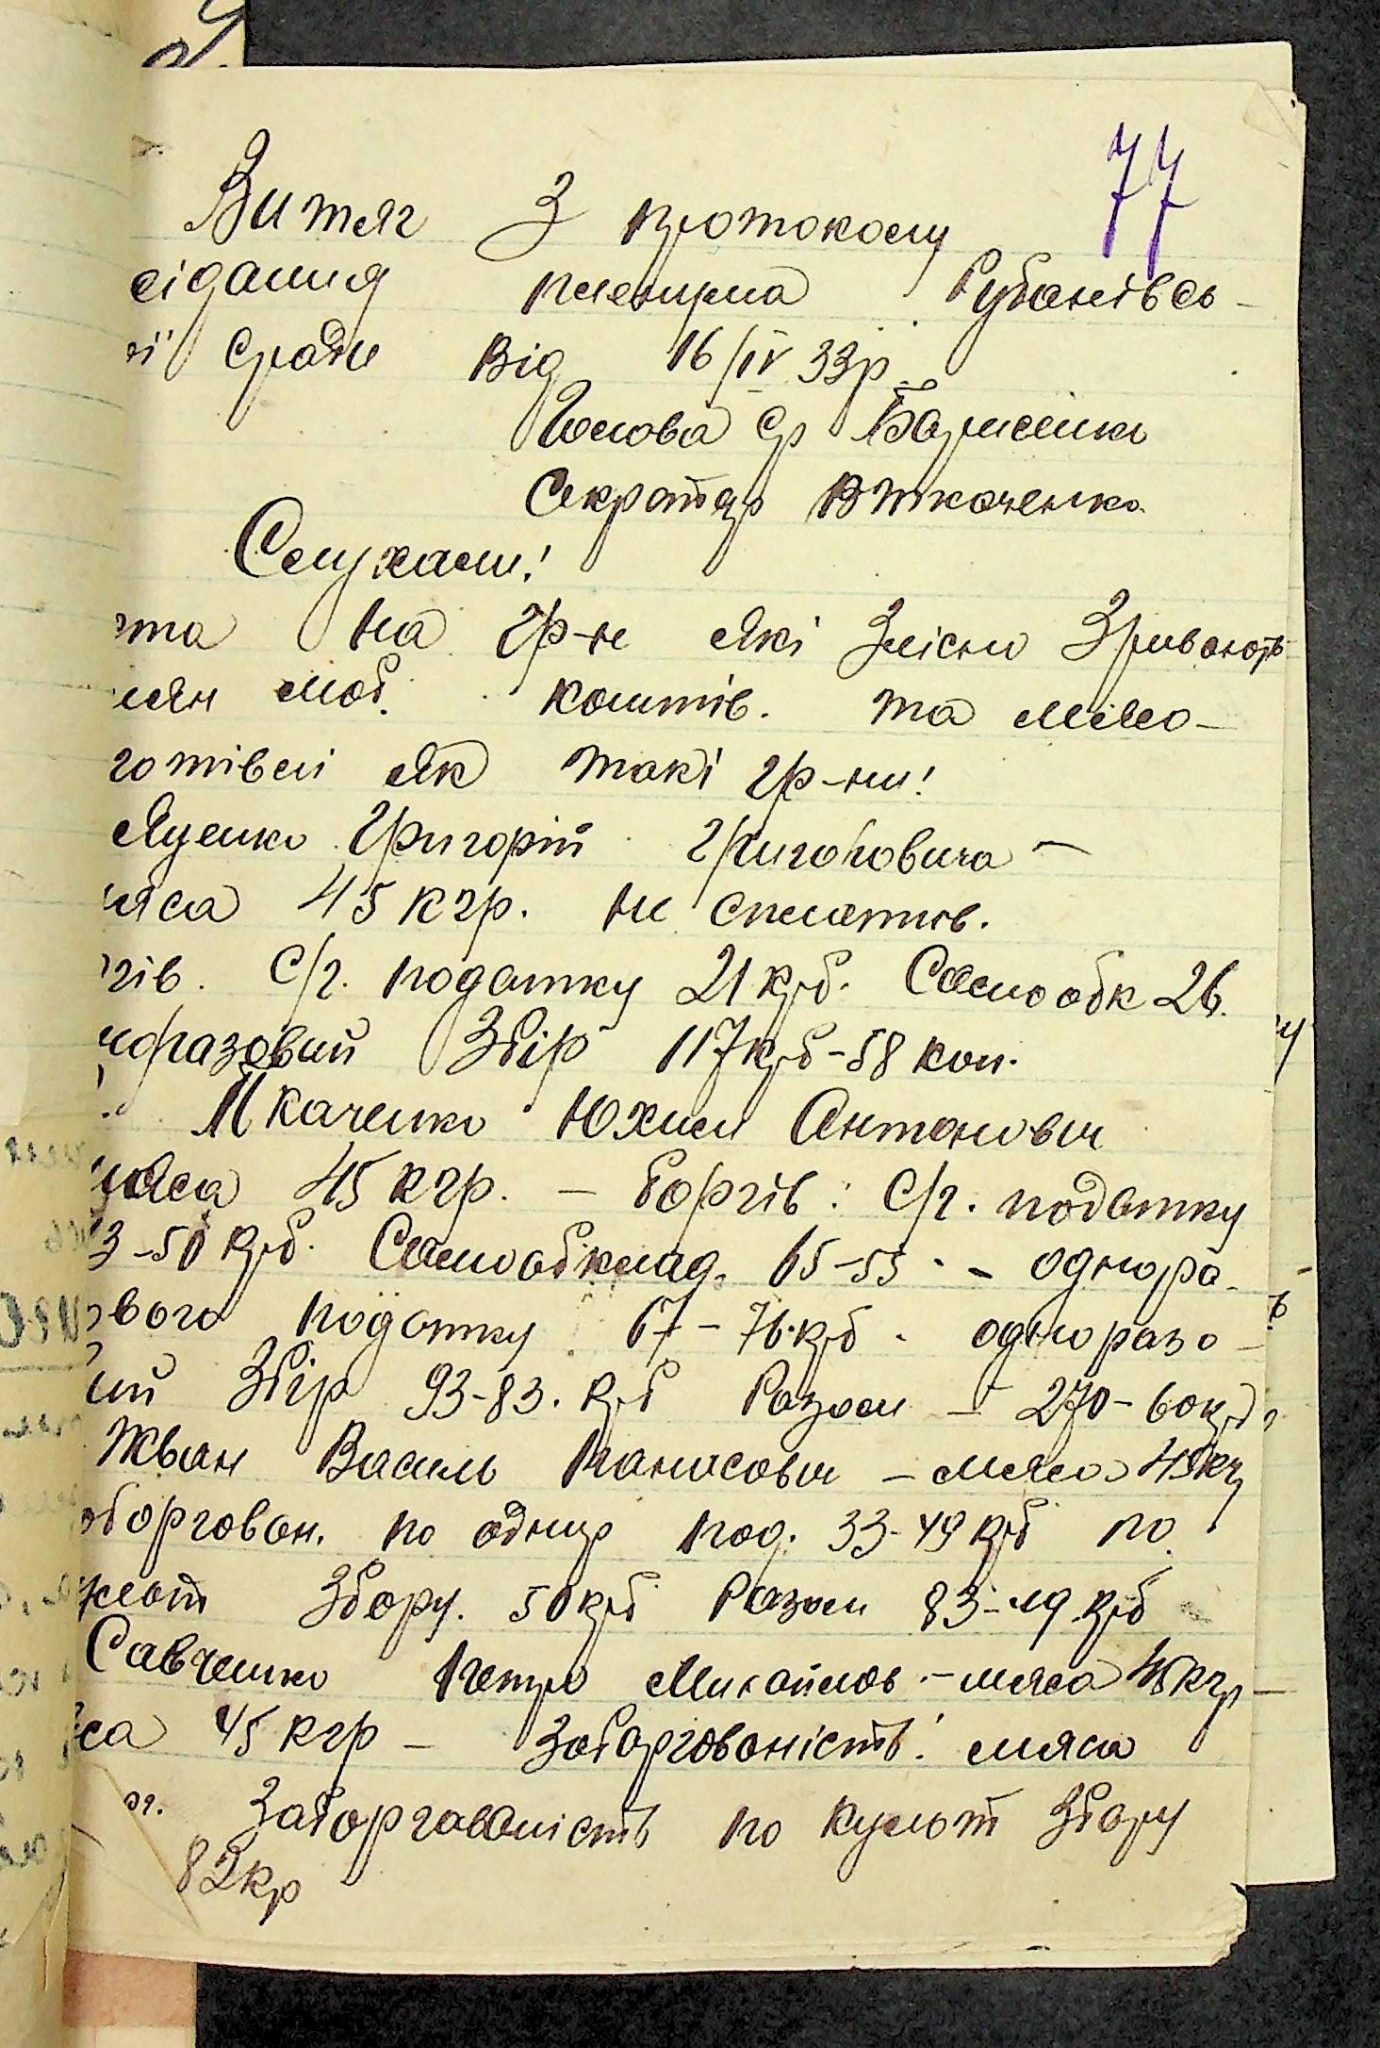 77
Витяг З протоколу
сідання пленума Рубанівсь-
ої с/ради від 16/IV 33р.
Голова Ср
Секратар В Ткаченко.
Слухали!
та на гр-н які злісни Зривають
лян моб. коштів. та мясо-
готівлі як такі гр-ни!
Яценко Григорій Григоровича —
мяса 45 кгр. не сплатив.
гів. С/г. податку 21 крб. Самообк 26.
норазовий Збір 117 крб-58 коп.
Ткаченко Юхим Антонович
мяса 45 кгр. - боргів: С/г. податку
3-50 крб. Самообклад. 65-55 - однора-
ового податку 67-76 крб. одноразо-
ий Збір 93-83. крб Разом - 270-60крб
Жван Василь Панасович - мяса 45кг
оборгован. по однур под. 33-49 крб по
культ Збору. 50 крб Разом 83-49 крб
Савченко Петро Михайлов - мяса 45кгр-
са 45 кгр - Заборгованість! мяса
ог. Заборгованість по культ Збору
82кр